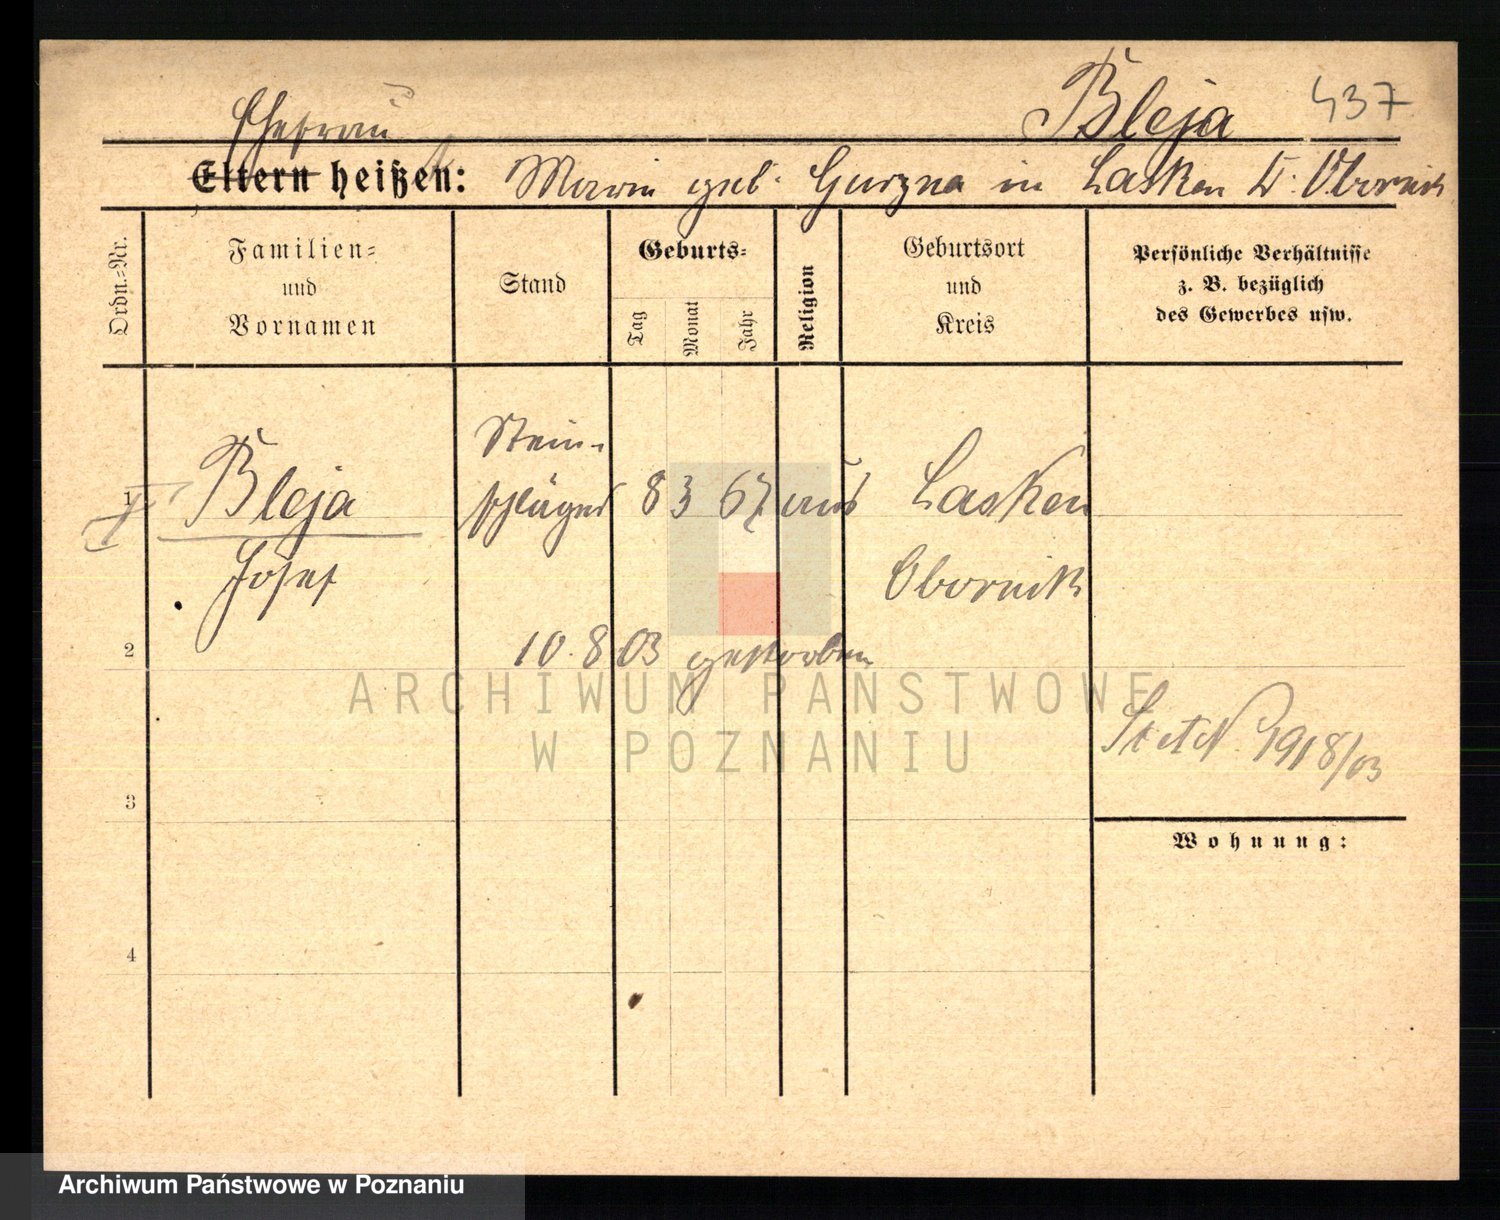 Bleja 437
Ehefrau
Eltern heißen: Maria geb. Gurzna in Lasken Kr. Obornik
Ordn.=Nr.
Familien=
und
Vornamen
Stand
Geburts=
Tag
Monat
Jahr
Religion
Geburtsort
und
Kreis
Persönliche Verhältnisse
z. B. bezüglich
des Gewerbes usw.
1
Bleja
Josef
Stein-
schläger
8 3 67 aus Lasken
Obornik
2
10.8.03 gestorben
ARCHIWUM PAŃSTWOWE
W POZNANIU
1918/03
3
Wohnung:
4
Archiwum Państwowe w Poznaniu